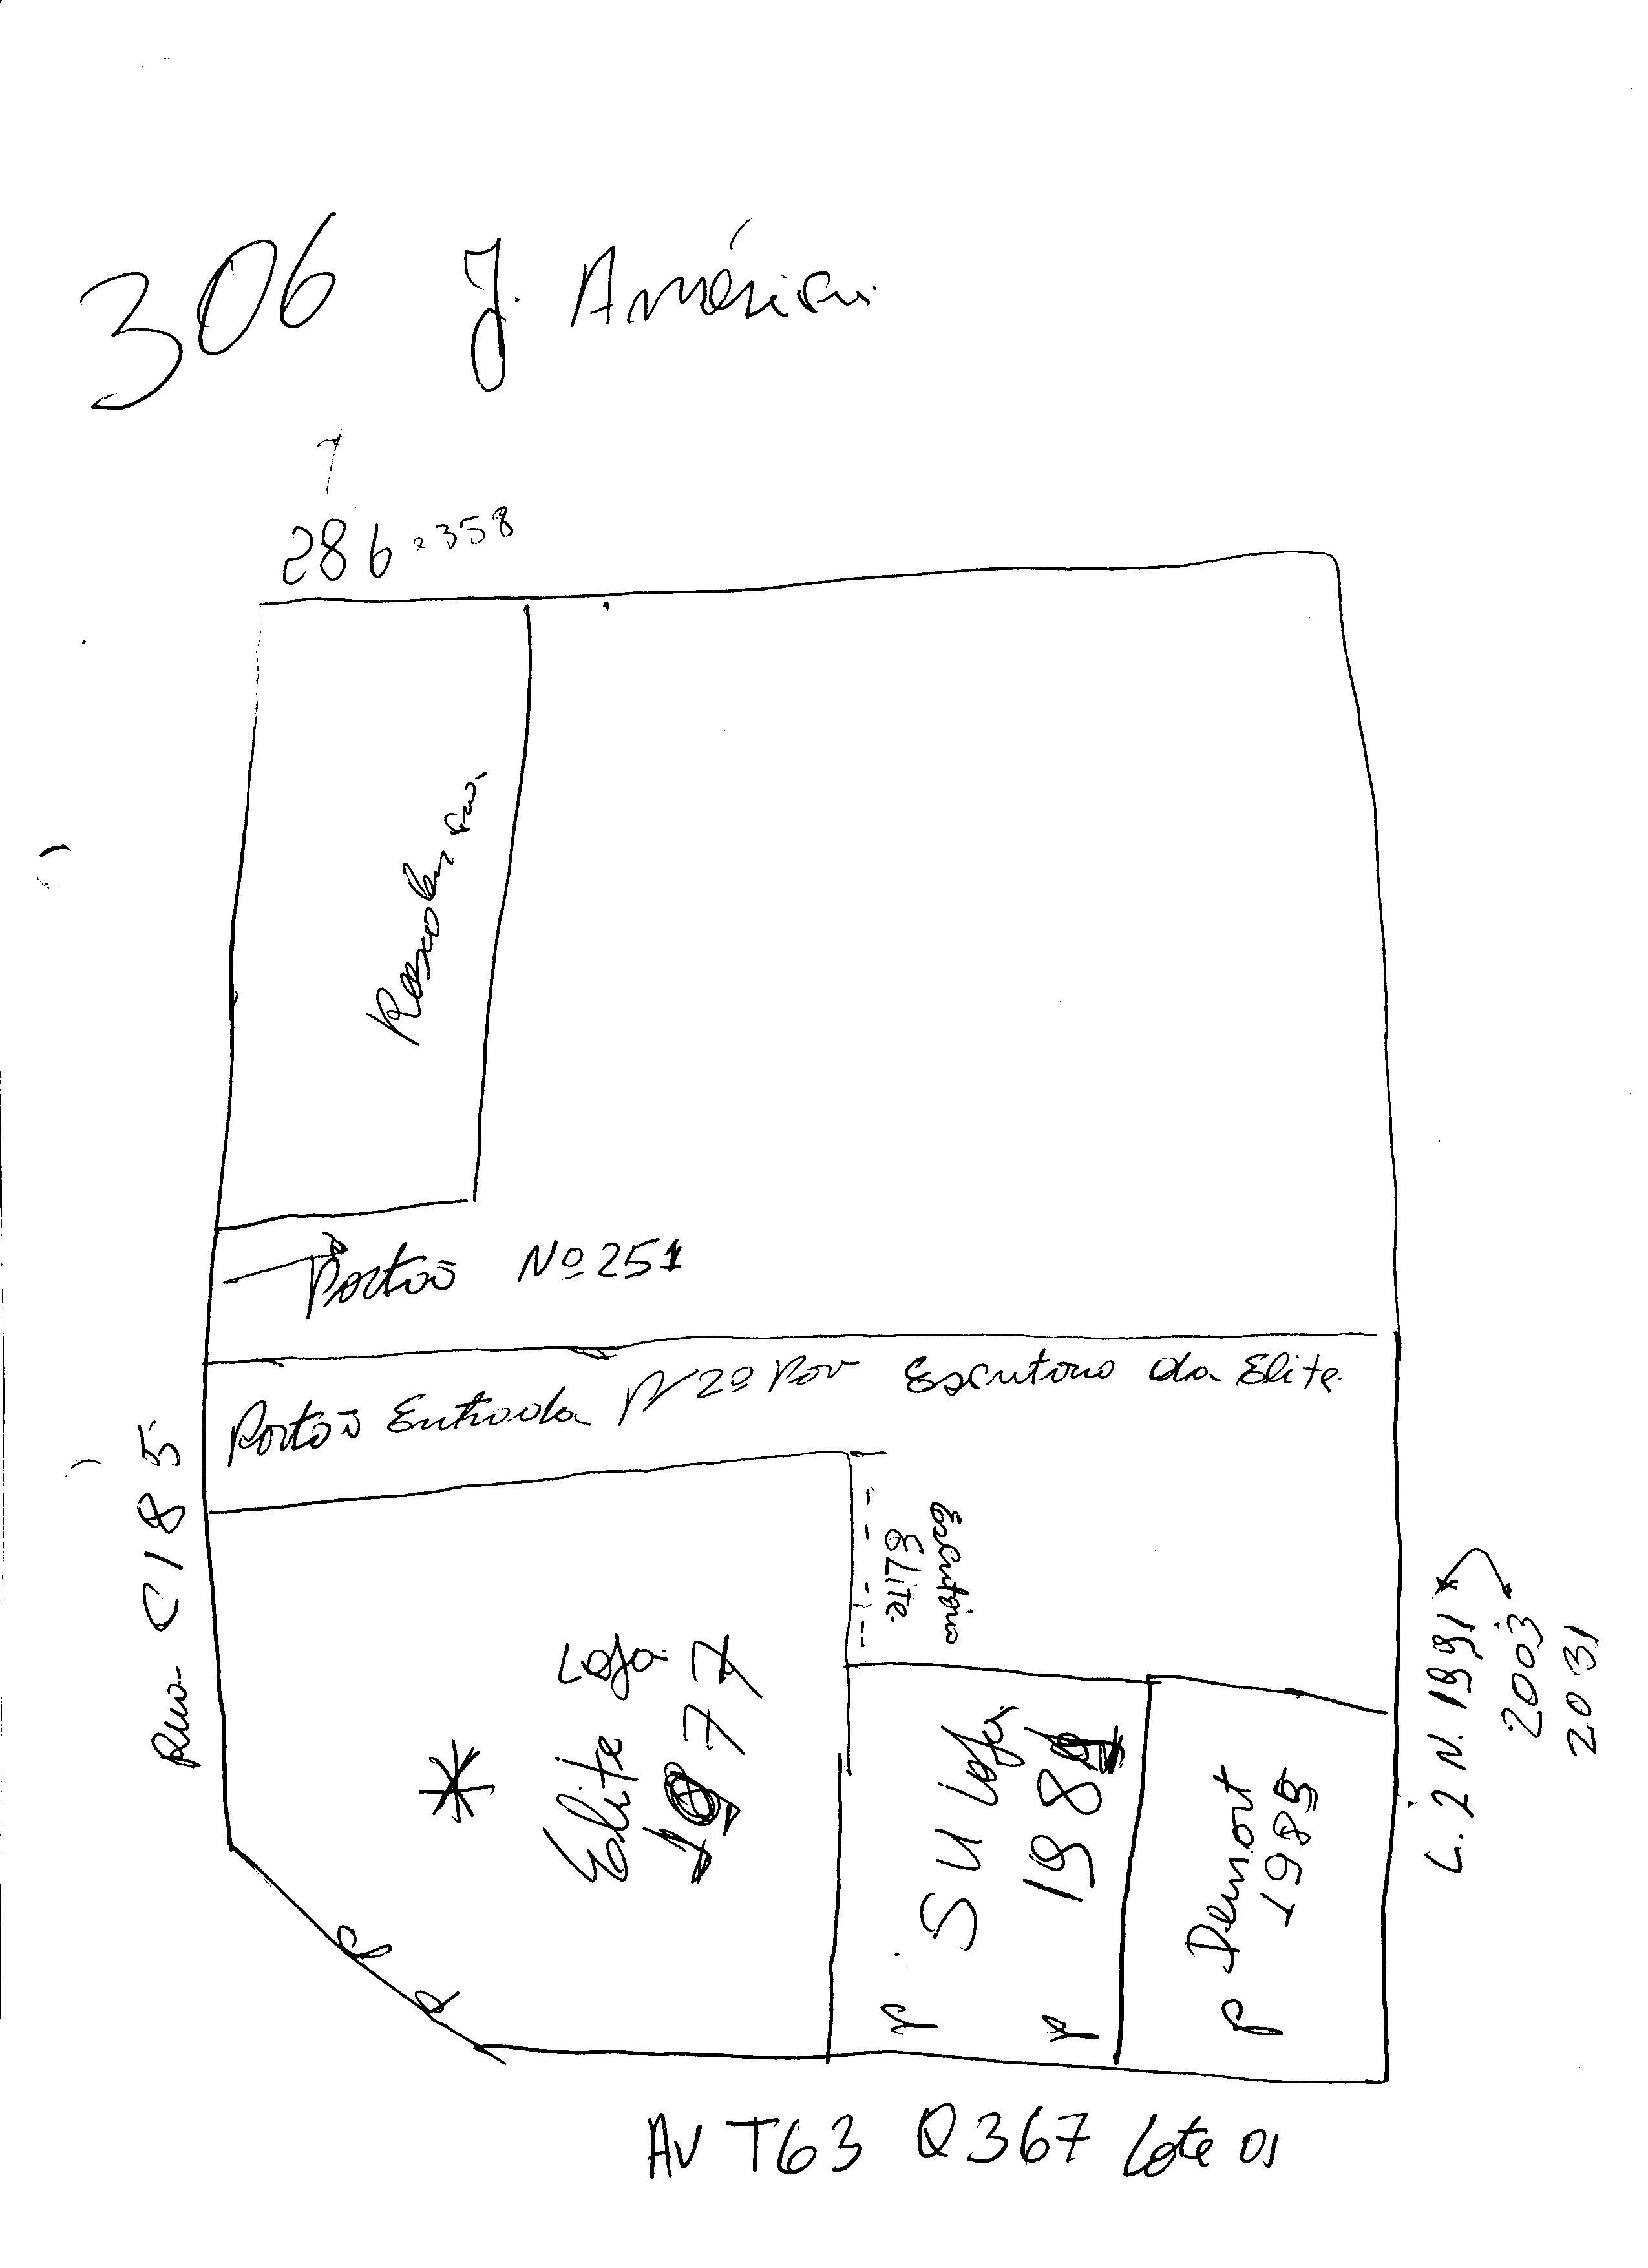 306 J. América
286 358
Portão Nº 251
Portão Entrada P/ 2º Pav Escritório da Elite
Rua C 185
Escritório
Elite
Loja
Elite
1977
SU Loja
198
P
P
P Demort
1985
P
P
L. 2 N. 1991
2003
2031
AV T63 Q367 Lote 01